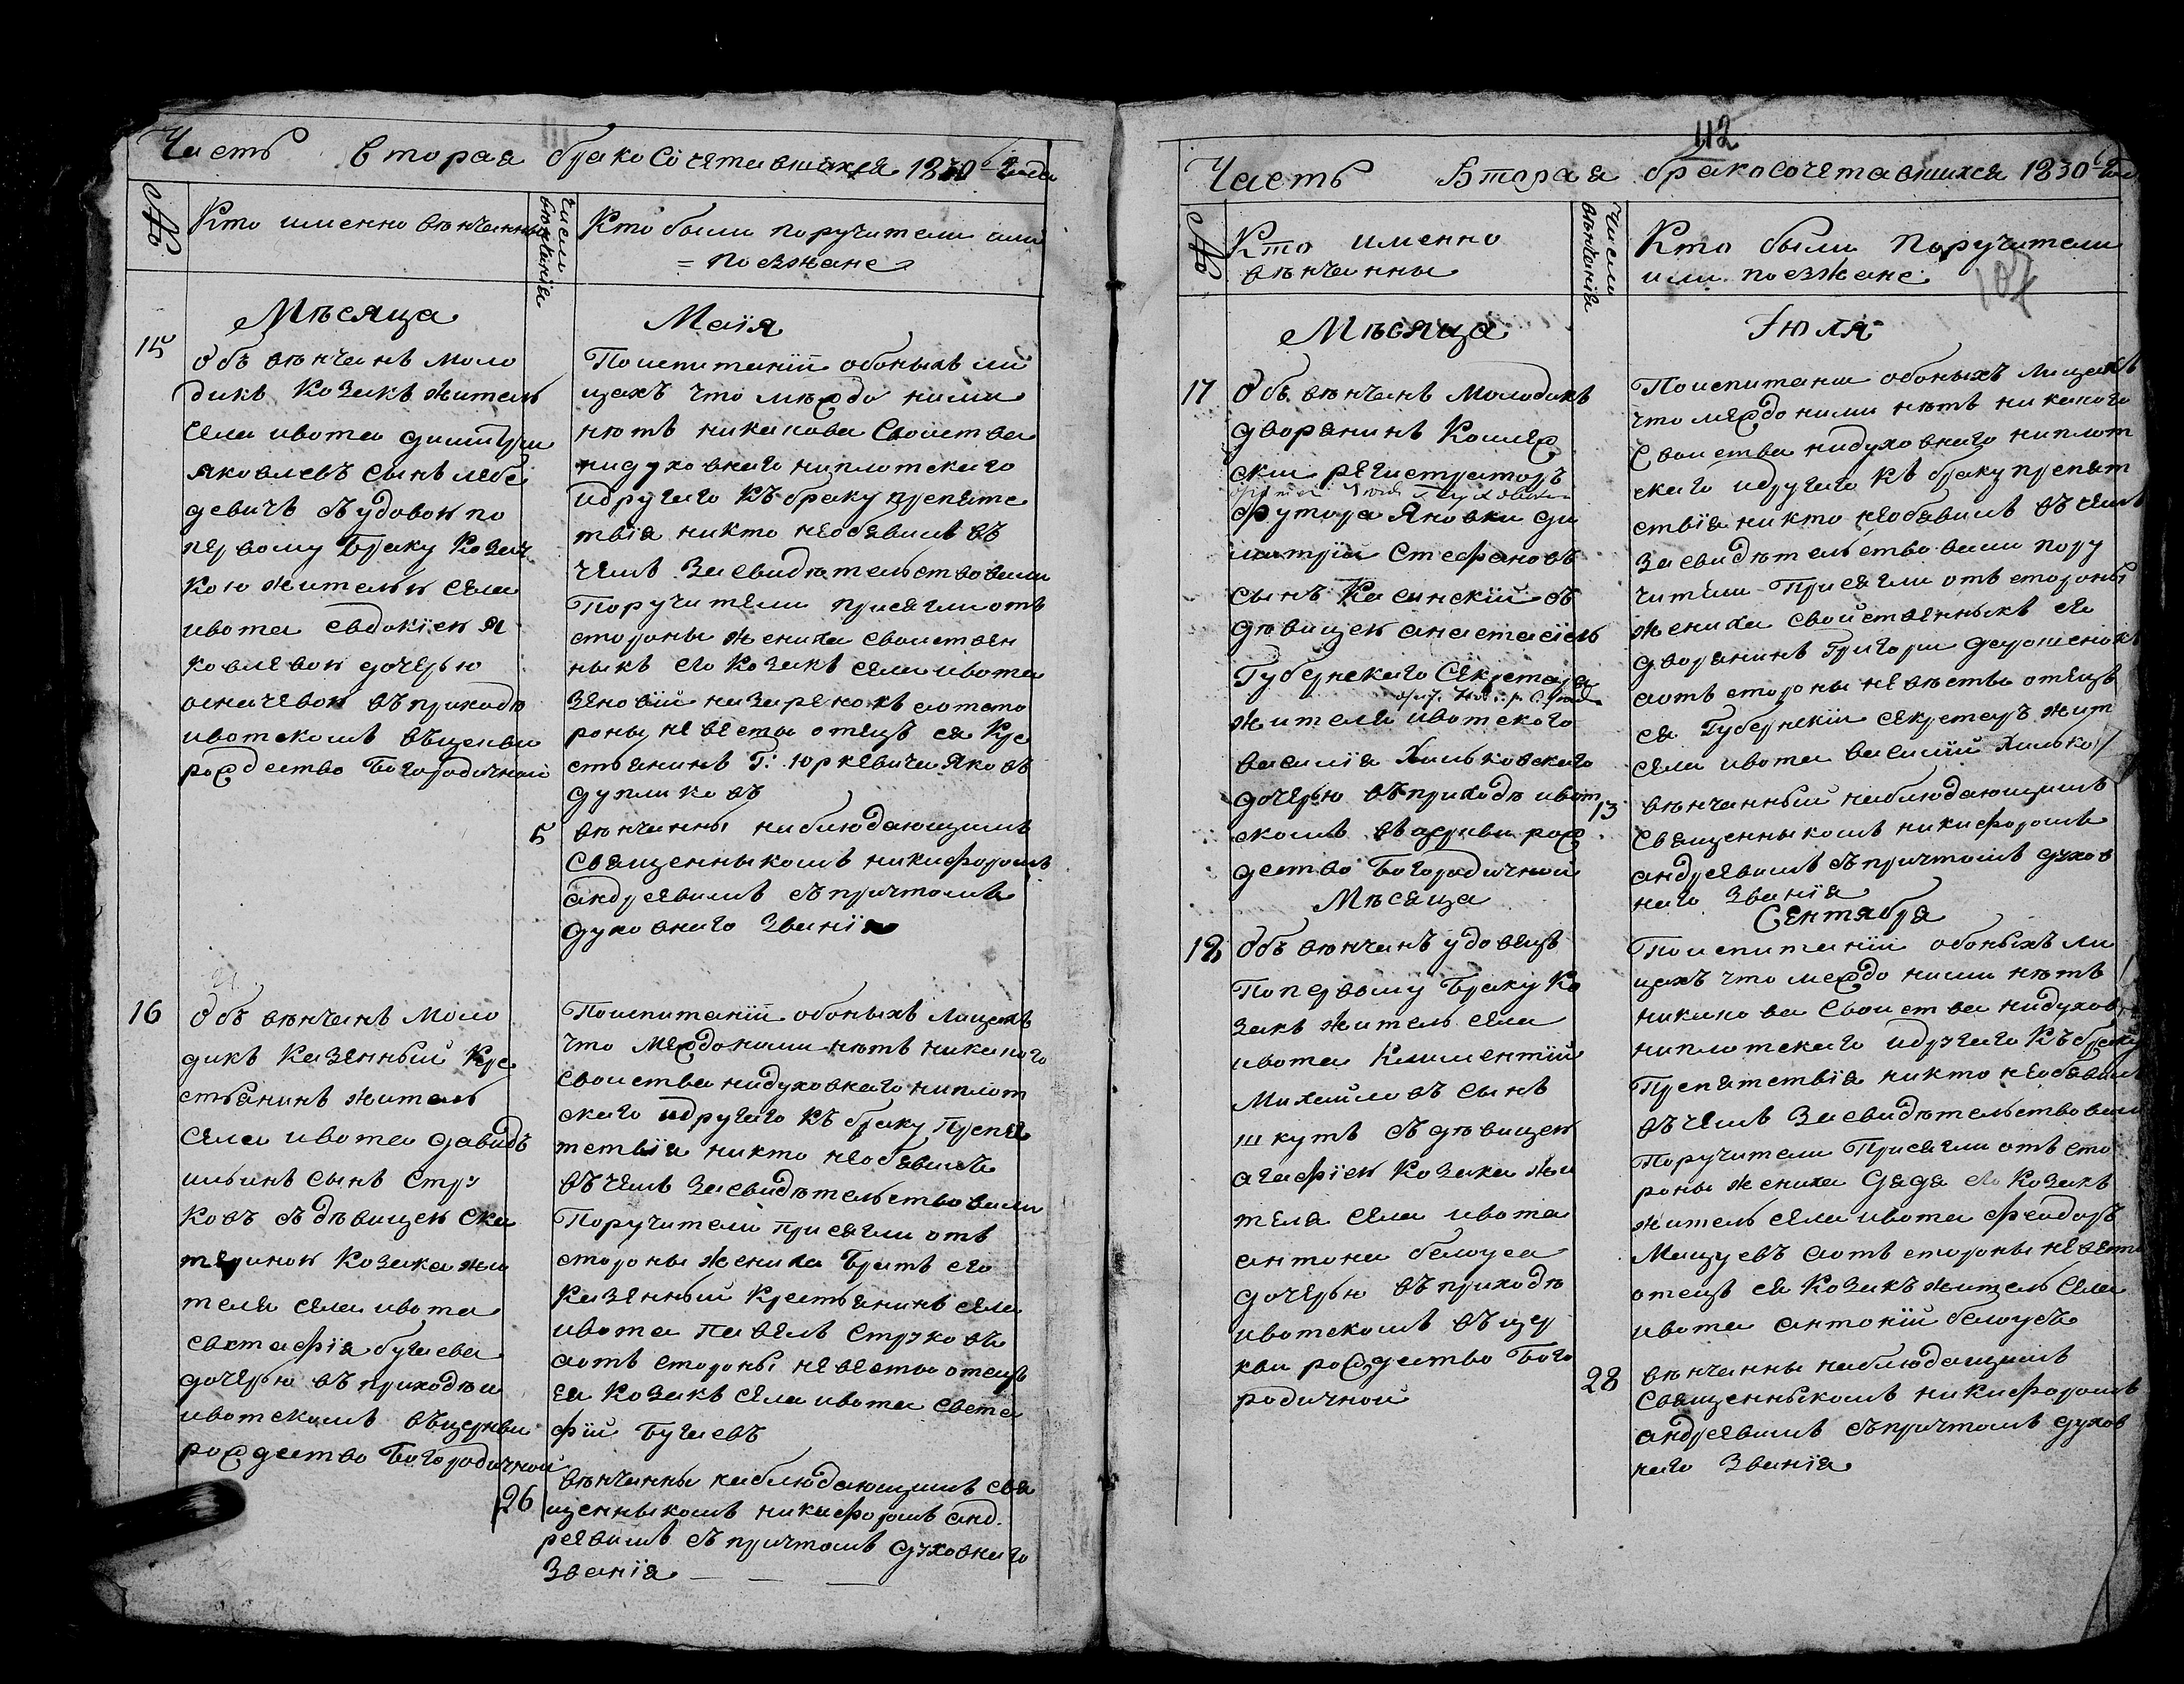 Часть вторая бракосочетавшихся 1830 года
№
Кто именно вѣнчанны
Числи вѣнчанія
Кто были поручители или
= поезжане
Мѣсяца
Маія
15
Объ вѣнчанъ моло
дикъ козакъ житель
села ивота димитри
яковлевъ сынъ лебе
девичъ съ удовою по
первому браку козач
кою жителькъ села
ивота евдокіею я
ковлевою дочерью
въ приходѣ
ивотскомъ въ церкви
рождество богородичной
По испитаніи обоныхъ ли
цахъ что между ними
нѣтъ никакова своиства
ни духовнаго ни плотскаго
и другаго къ браку препятс
твія никто необявилъ въ
чемъ засвидѣтельствовали
Поручители присягли отъ
стороны жениха своиствен
ныхъ его козакъ села ивота
зеновій назаренокъ а отъ сто
роны невесты отецъ ея кре
стьянинъ Г: юркевича яковъ
дупликовъ
5
вѣнчанны наблюдающимъ
священныкомъ никифоромъ
андреевимъ съ причтомъ
духовнаго званія
16
Объ вѣнчанъ моло
дикъ казенный кре
стьянинъ житель
села ивота давидъ
ильинъ сынъ стру
ковъ съ дѣвицею ека
териною козака жи
теля села ивота
евстафія бугаева
дочерью въ приходѣ
ивотскомъ въ церкви
рождество богородичной
По испитаніи обоныхъ лицахъ
что между ними нѣтъ никакого
своиства ни духовнаго ни плот
скаго и другаго къ браку препя
тствія никто необявилъ
въ чемъ засвидѣтельствовали
Поручители присягли отъ
стороны жениха братъ его
казенный крестьянинъ села
ивота павелъ струковъ
а отъ стороны невесты отецъ
ея козакъ села ивота евста
фій бугаевъ
26
вѣнчанны наблюдающимъ свя
щенныкомъ никифоромъ анд
реевимъ съ причтомъ духовнаго
званія
112
Часть Вторая бракосочетавшихся 1830 года
№
Кто именно
вѣнчанны
Числи вѣнчанія
Кто были Поручители
или поезжане
107
Мѣсяца
Іюля
17
Объ вѣнчанъ молодикъ
дворянинъ колеж
скии регистраторъ
футора Яновки ди
митрій стефановъ
сынъ касинскій съ
дѣвицею анастасіею
Губернскаго секретаря
жителя ивотского
василія Хильковского
дочерью въ приходѣ ивот
скомъ въ церкви рож
дество богородичной
По испитаніи обоныхъ лицахъ
что между ними нѣтъ никакого
своиства ни духовнаго ни плот
скаго и другаго къ браку препят
ствія никто необявилъ въ чемъ
засвидѣтельствовали пору
чители Присягли отъ стороны
жениха свойственныкъ его
дворянинъ Григори дорошенокъ
а отъ стороны невѣсты отецъ
ея Губернскіи секретаръ жит
села ивота василій Хилько
13
вѣнчанный наблюдающимъ
священныкомъ никифоромъ
андреевимъ съ причтомъ духов
наго званія
Мѣсяца
Сентября
18
Объ вѣнчанъ удовецъ
По первому браку ко
закъ житель села
ивота климентій
Михайловъ сынъ
шкутъ съ дѣвицею
агафіею козака жи
теля села ивота
антона белоуса
дочерью въ приходѣ
ивотскомъ въ цер
кви рождество бого
родичной
По испитаніи обоныхъ ли
цахъ что между ними нѣтъ
никакова своиства ни духов
ни плотскаго и другаго къ браку
Препятствія никто необявилъ
въ чемъ засвидѣтельствовали
Поручители Присягли отъ сто
роны жениха дядя его козакъ
житель села ивота феодоръ
Мацуевъ а отъ стороны невѣсти
отецъ ея козакъ житель села
ивота антоній белоусъ
28
вѣнчанны наблюдащимъ
священныкомъ никифоромъ
андреевимъ съ причтомъ духов
наго званія